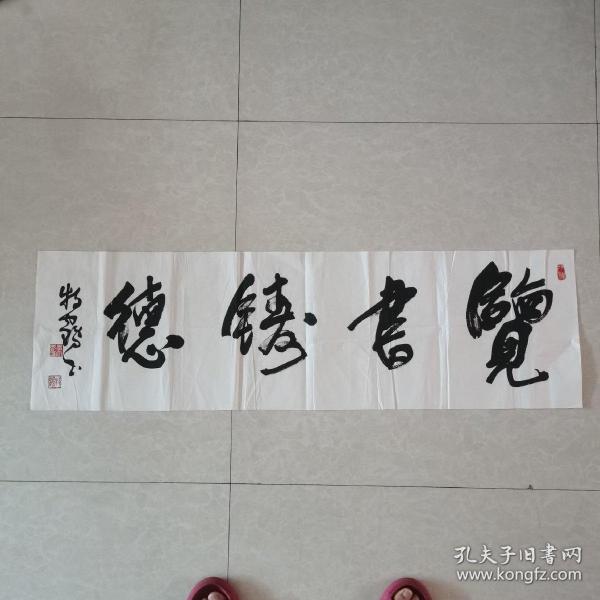 覽書鑄德
孔夫子旧書网
www.kongfz.com